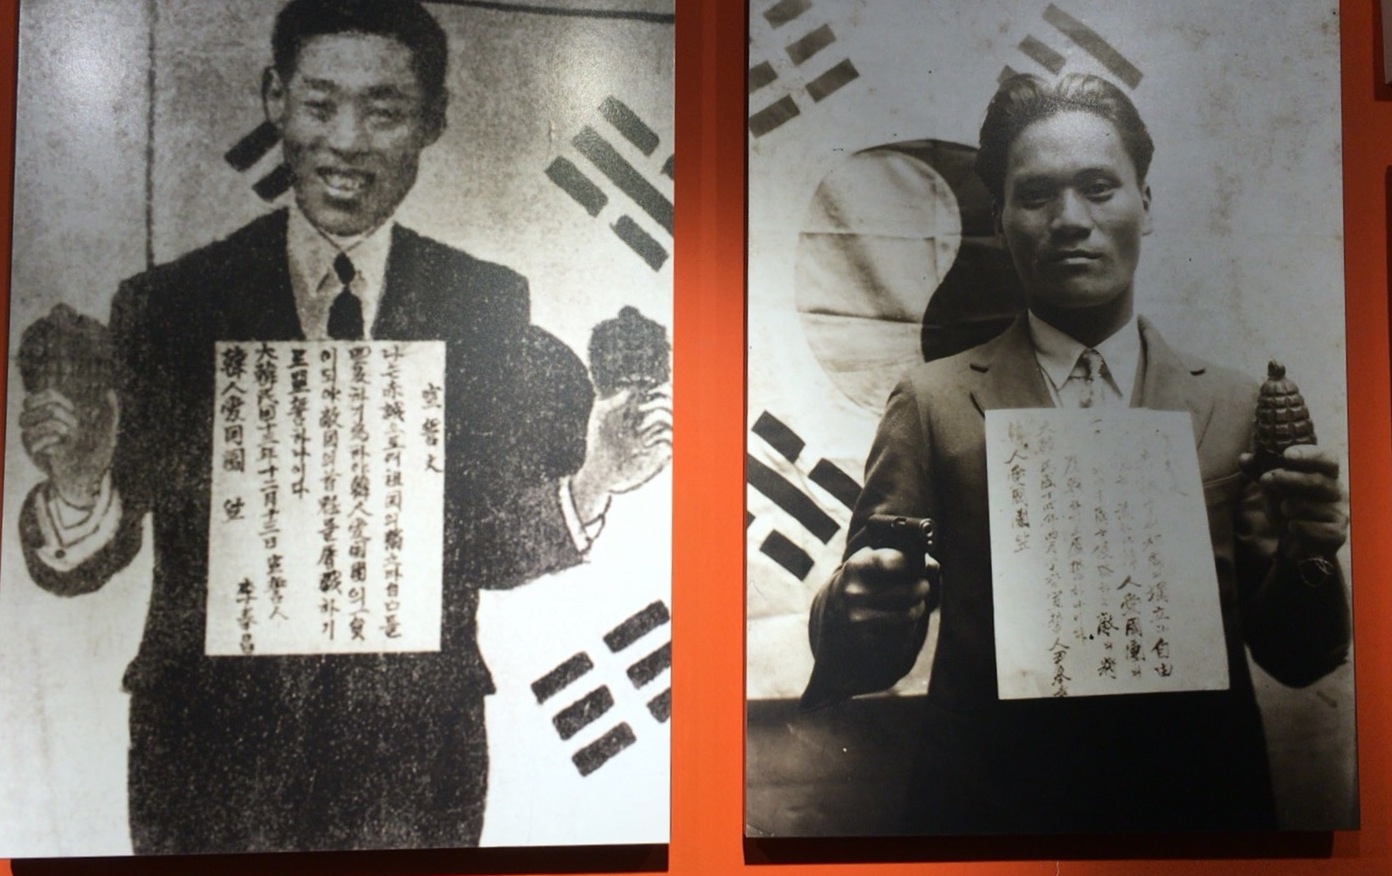 宣誓文
나는赤誠으로써祖國의獨立과自由를
回復하기爲하야韓人愛國團의一員
이되야敵國의首魁를屠戮하기
로盟誓하나이다
大韓民國十三年十二月十三日 宣誓人 李奉昌
韓人愛國團 앞
祖國의獨立과自由
人愛國團의
侵略하는敵의將
屠戮하기로
大韓民國十四年四月 宣誓人尹奉吉
韓人愛國團앞